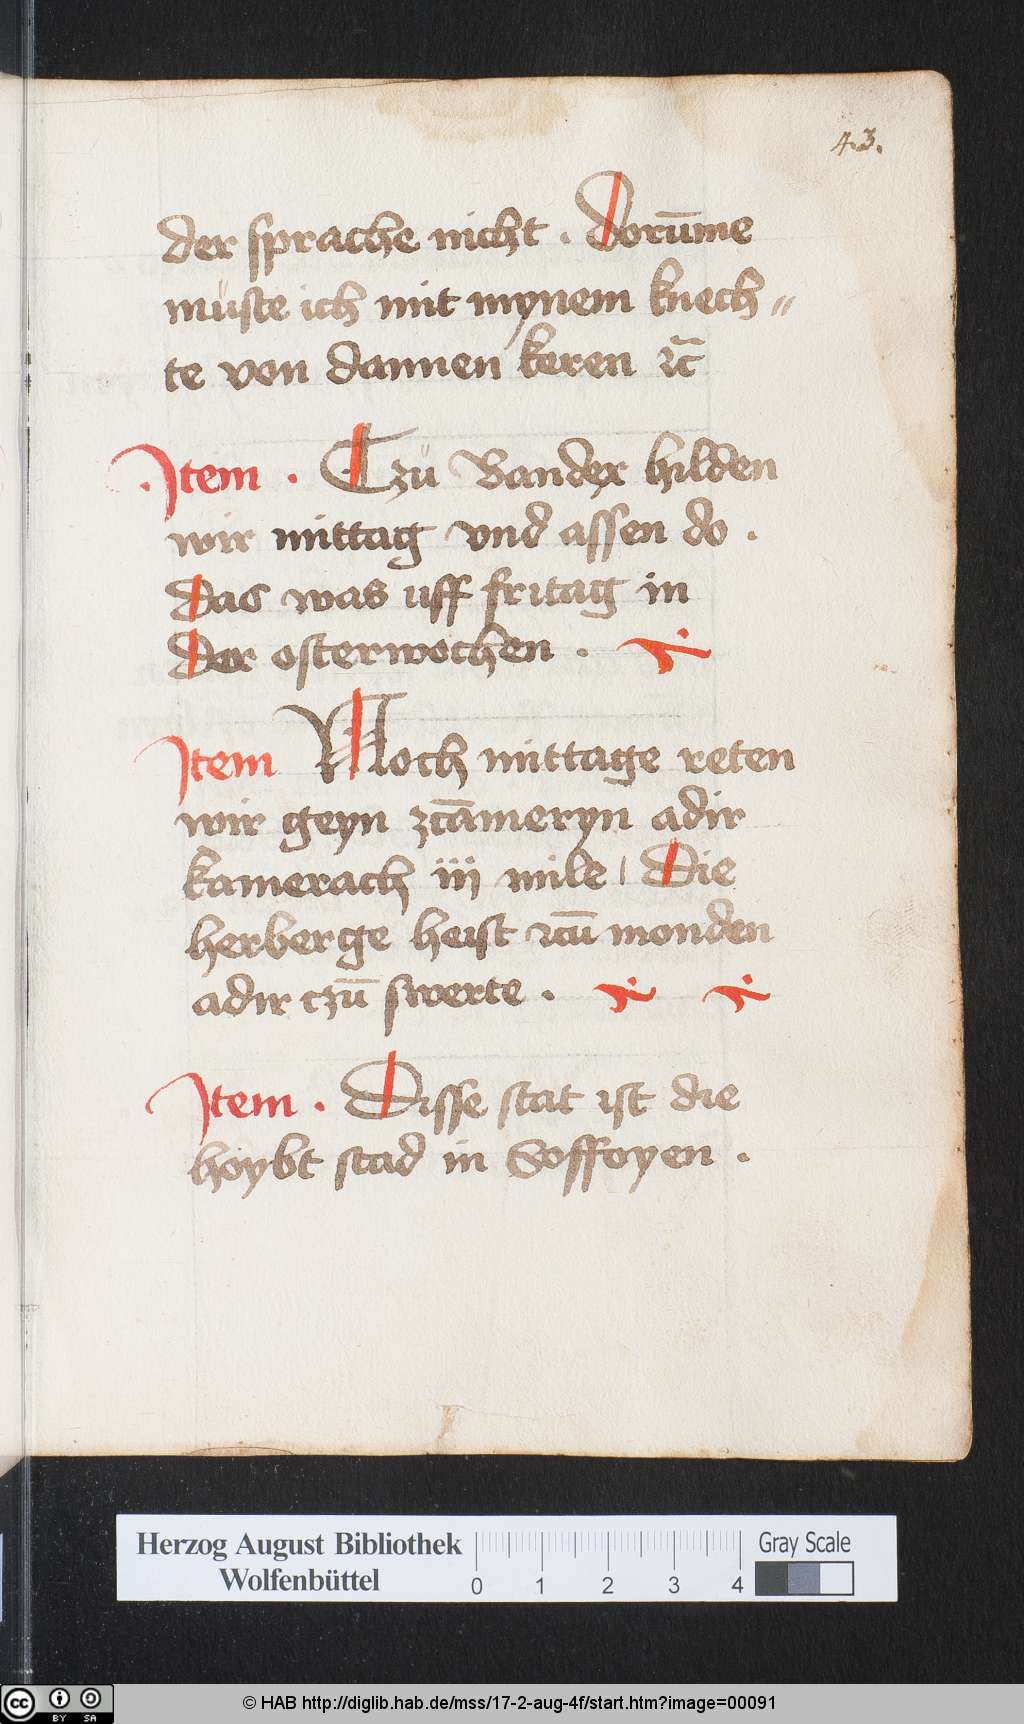 43.
der sprache nicht . Dorūme
müste ich mit mynem knech〃
te von dannen keren ⁊c̄
Item . Czü Bander hilden
wir mittag vnd assen do .
Das was uff fritag in
Der osterwochen .
Item Noch mittage reten
wir geyn zcāmeryn adir
kamerach iij mile | Die
herberge heist zcū monden
adir czūm swerte .
Item . Disse stat ist die
hoybt stad in Soffoyen .
Herzog August Bibliothek
Wolfenbüttel
0 1 2 3 4
Gray Scale
cc BY SA
© HAB http://diglib.hab.de/mss/17-2-aug-4f/start.htm?image=00091